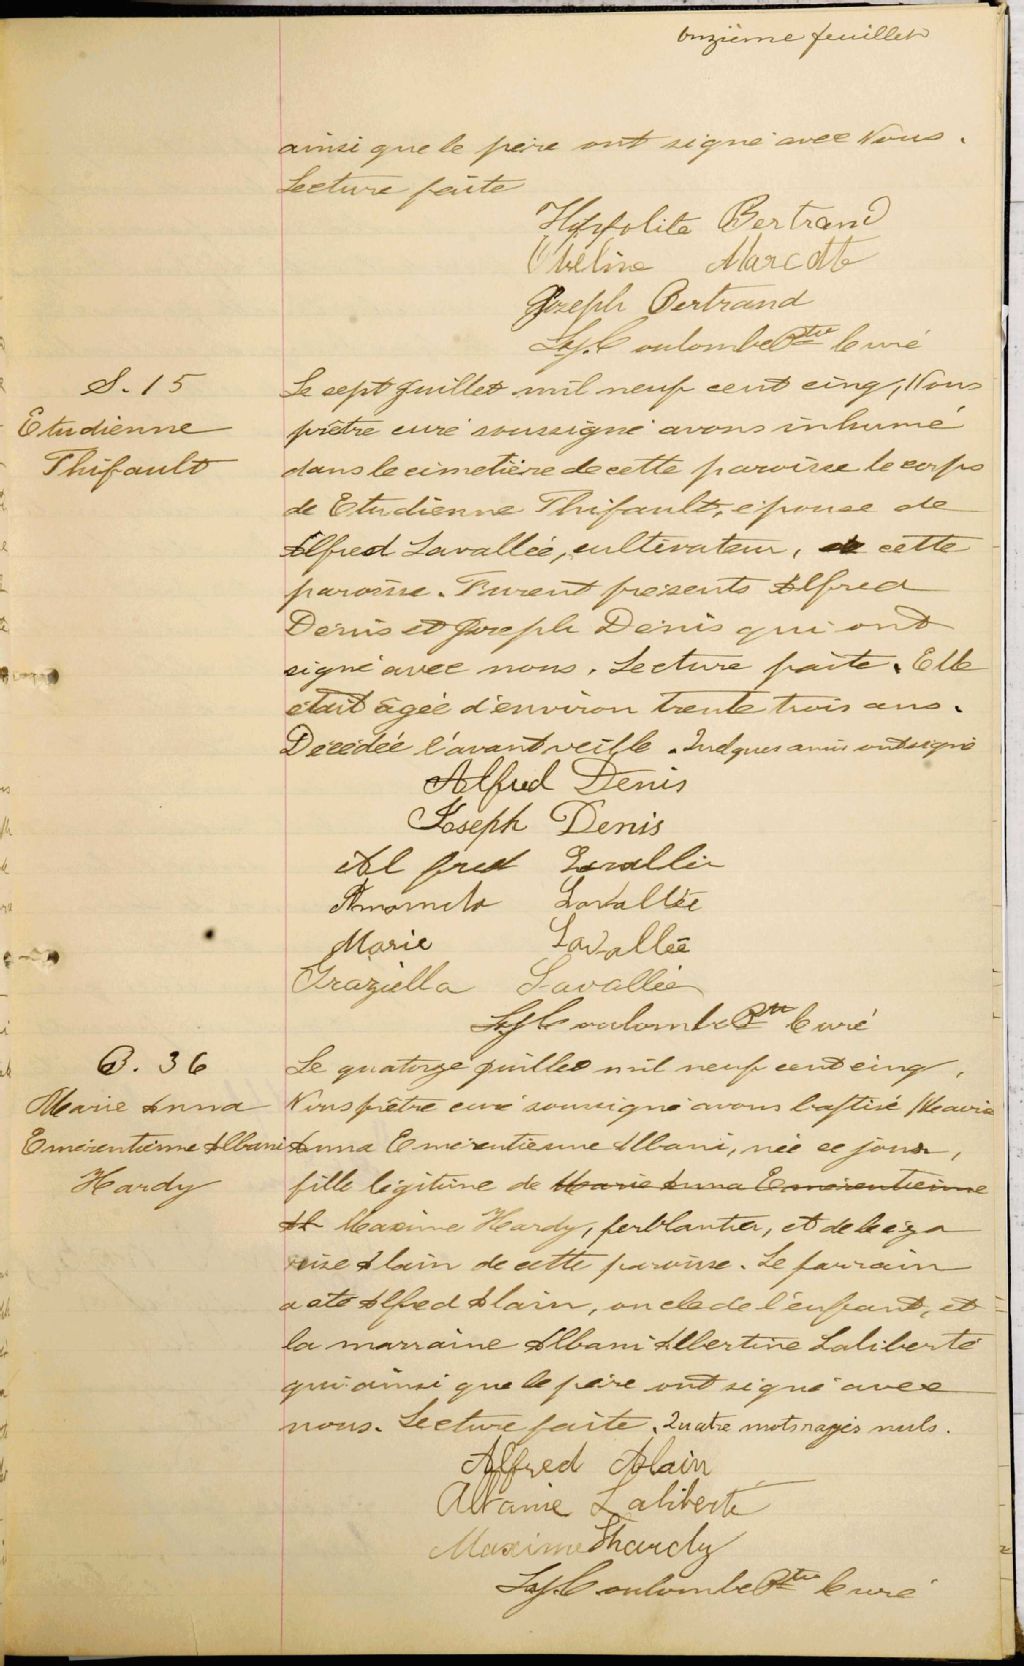 onzième feuillet
ainsi que le père ont signé avec Nous.
Lecture faite
Hyppolite Bertrand
Obéline Marcotte
Joseph Bertrand
Ls. J. Coulombe Ptre Curé
S. 15
Etudienne
Thifault
Le sept juillet mil neuf cent cinq, Nous
prêtre curé soussigné avons inhumé
dans le cimetière de cette paroisse le corps
de Etudienne Thifault, épouse de
Alfred Lavallée, cultivateur, de cette
paroisse. Furent présents Alfred
Denis et Joseph Denis qui ont
signé avec nous. Lecture faite. Elle
était âgée d'environ trente trois ans.
Décédée l'avant veille. Quelques amis ont signé
Alfred Denis
Joseph Denis
Alfred Lavallée
Lavallée
Marie Lavallée
Graziella Lavallée
Ls. J. Coulombe Ptre Curé
B. 36
Marie Anna
Emérentienne Albani
Hardy
Le quatorze juillet mil neuf cent cinq,
Nous prêtre curé soussigné avons baptisé Marie
Anna Emérentienne Albani, née ce jour,
fille légitime de Marie Anna Emérentienne
Al Maxime Hardy, ferblantier, et de
Alain de cette paroisse. Le parrain
a été Alfred Alain, oncle de l'enfant, et
la marraine Albani Albertine Laliberté
qui ainsi que le père ont signé avec
nous. Lecture faite. Quatre mots rayés nuls.
Alfred Alain
Albanie Laliberté
Maxime Hardy
Ls. J. Coulombe Ptre Curé